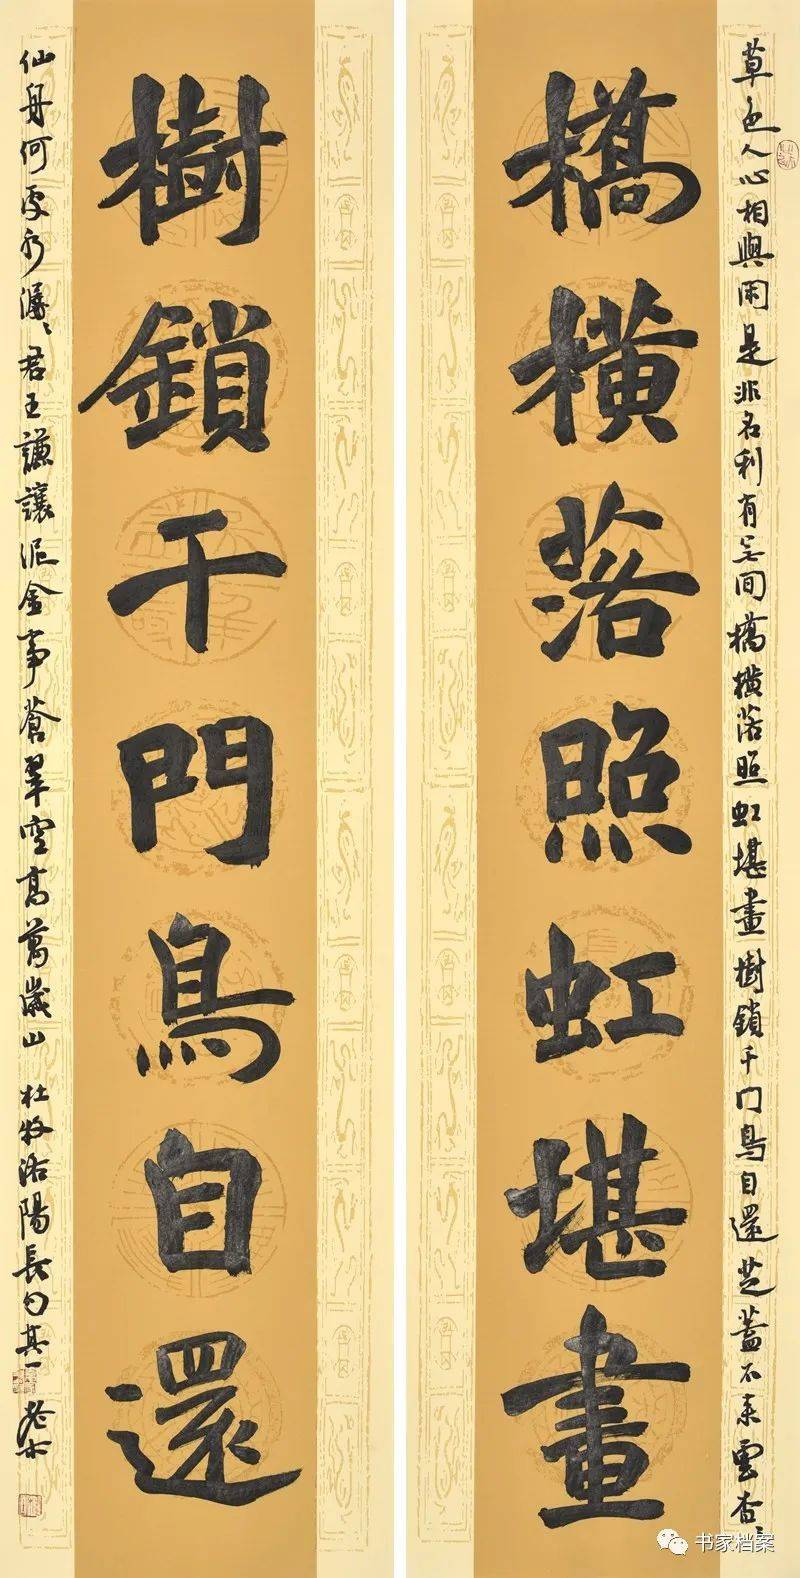 草色人心相與閑是非名利有无间橋橫落照虹堪畫樹鎖千门鳥自還芝蓋不來雲杳々
橋橫落照虹堪畫
樹鎖千門鳥自還
仙舟何處水潺々君王謙讓泥金事蒼翠空高萬歲山 杜牧洛陽長句其一
书家档案